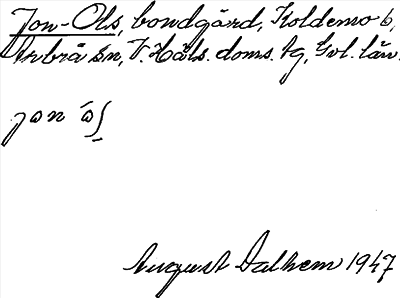 Jon-Ols, bondgård, Koldemo 6,
Arbrå sn, V. Häls. doms. tg, Gvl. län.
jon ós
August Dalhem 1947